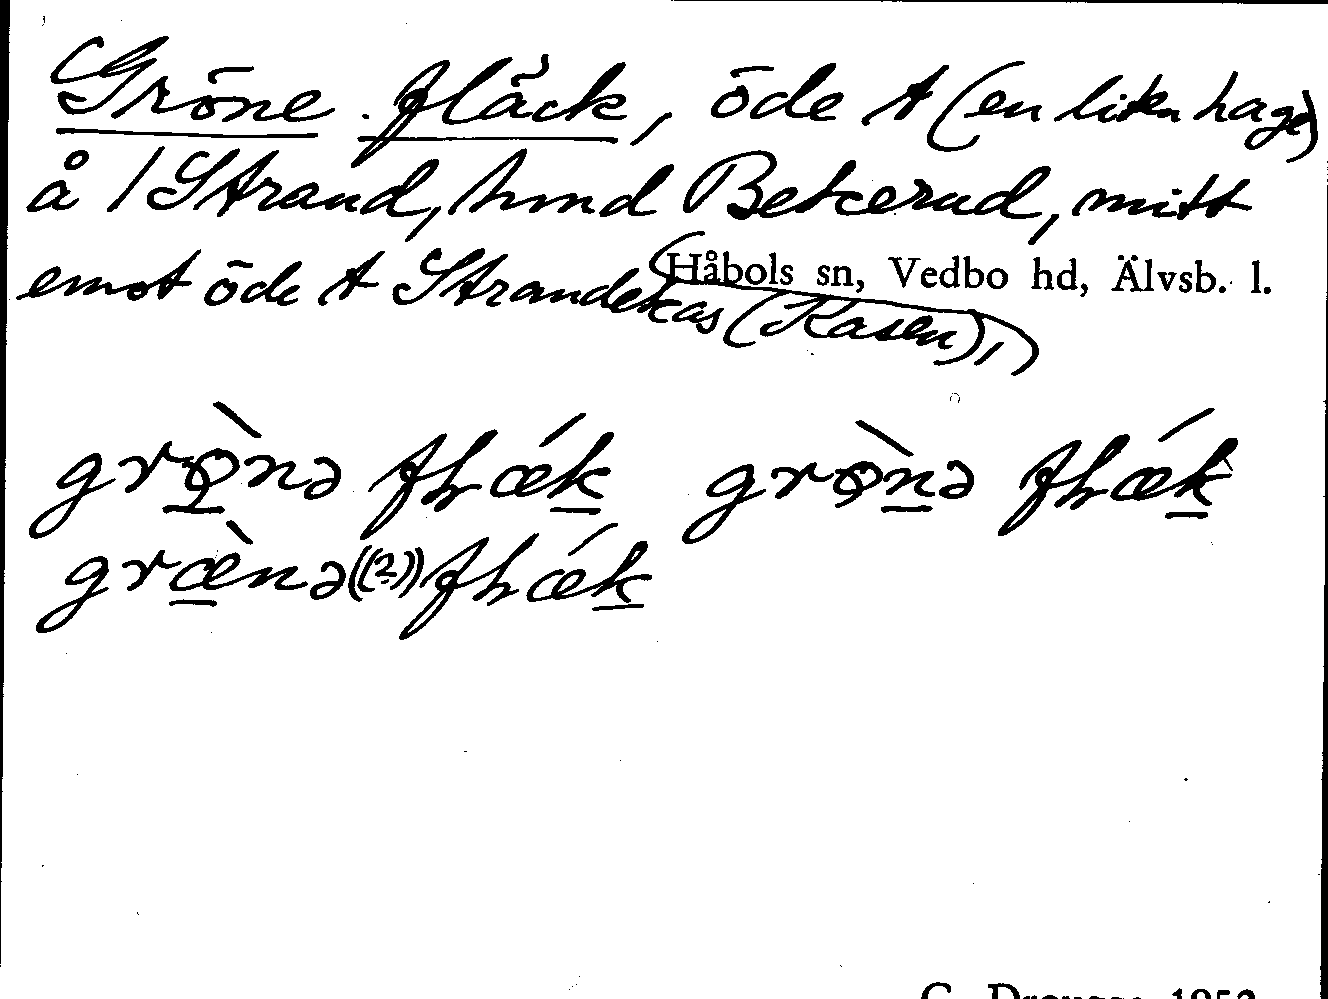 Gröne fläck, öde t (en liten hage)
å 1 Strand, hmd Betcerud, mitt
emot öde t Strandekas (Kasen),
Håbols sn, Vedbo hd, Älvsb. l.
grø̀nə fɫǽk grø̀nə fɫǽk
græ̀nə((2)) fɫǽk